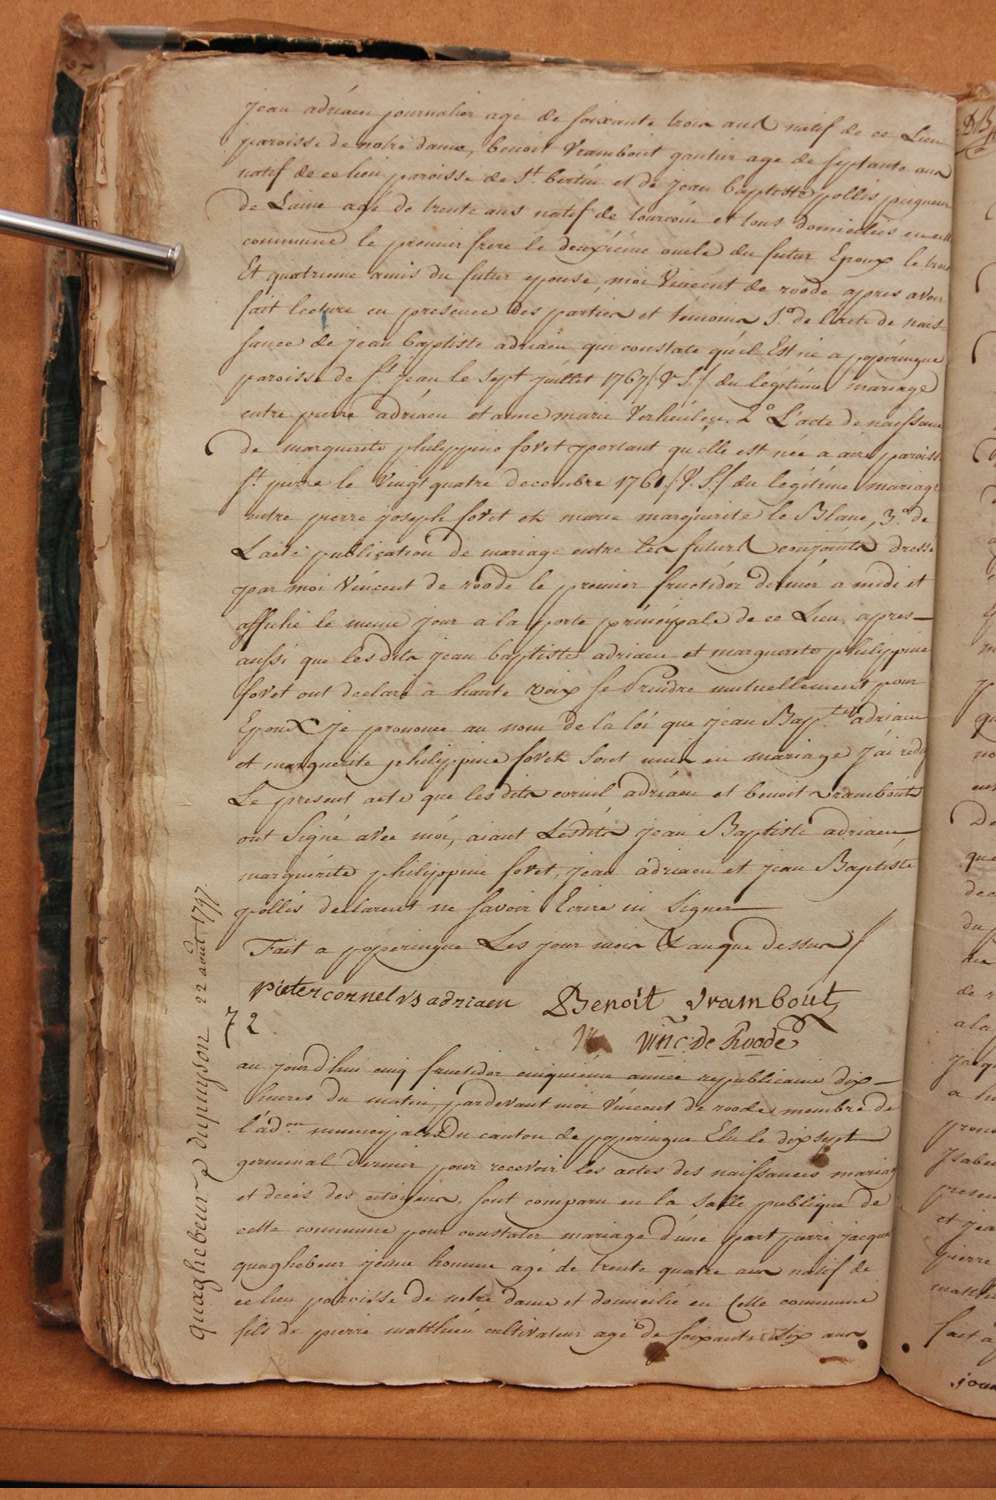 jean adriaen journalier agé de soixante trois ans natif de ce Lieu
paroisse de notre dame, benoit Vrambout gantier age de septante ans
natif de ce lieu paroisse de St. bertin et de jean baptiste pollis peigneur
de Laine age de trente ans natif de tourcoin et tous domiciliés en cette
commune le premier frere le deuxième oncle du futur Epoux le trois
Et quatrieme amis du futur epouse, moi Vincent de roode apres avoir
fait lecture en presence des parties et temoins 1.o de l'acte de nais-
sance de jean baptiste adriaen qui constate qu'il Est né a poperingue
paroisse de St. jean le sept juillet 1767 /V.S./ du legitime mariage
entre pierre adriaen et anne marie Verheulege. 2.o L'acte de naissance
de marguerite philippine foret portant qu'elle est née a aire paroisse
St. pierre le Vingt quatre decembre 1761 /V.S./ du légitime mariage
entre pierre joseph foret et marie marguerite le Blanc, 3.o de
L'acte publication de mariage entre les futurs conjoints dressé
par moi Vincent de roode le premier fructidor dernier a midi et
affiché le meme jour a la porte principale de ce Lieu, apres
aussi que lesdits jean baptiste adriaen et marguerite philippine
foret ont declaré à haute voix se prendre mutuellement pour
Epoux je prononce au nom de la loi que jean Bapte. adriaen
et marguerite philippine foret sont unis en mariage j'ai redigé
Le present acte que lesdits corneil adriaen et benoit vrambout
ont Signé avec moi, aiant Lesdits jean Baptiste adriaen
marguerite philippine foret, jean adriaen et jean Baptiste
pollis declarent ne savoir Ecrire ni Signer
Fait a poperingue Les jour mois & an que dessus
Pieter cornelvs adriaen Benoit Vrambout
Vinc. de Roode
72
au jourd'hui cinq fructidor cinquieme année republicaine dix
heures du matin, pardevant moi Vincent de roode membre de
l'adon. municipale du canton de poperingue Elu le dix sept
germinal dernier pour recevoir les actes des naissances mariages
et decés des citoyens, sont comparu en la salle publique de
cette commune pour constater mariage d'une part pierre jacques
quaghebeur jeune homme agé de trente quatre ans natif de
ce lieu paroisse de notre dame et domicilié en Cette commune
fils de pierre matthieu cultivateur agé de soixante dix ans
quaghebeur x dupuyson 22 août 1797.